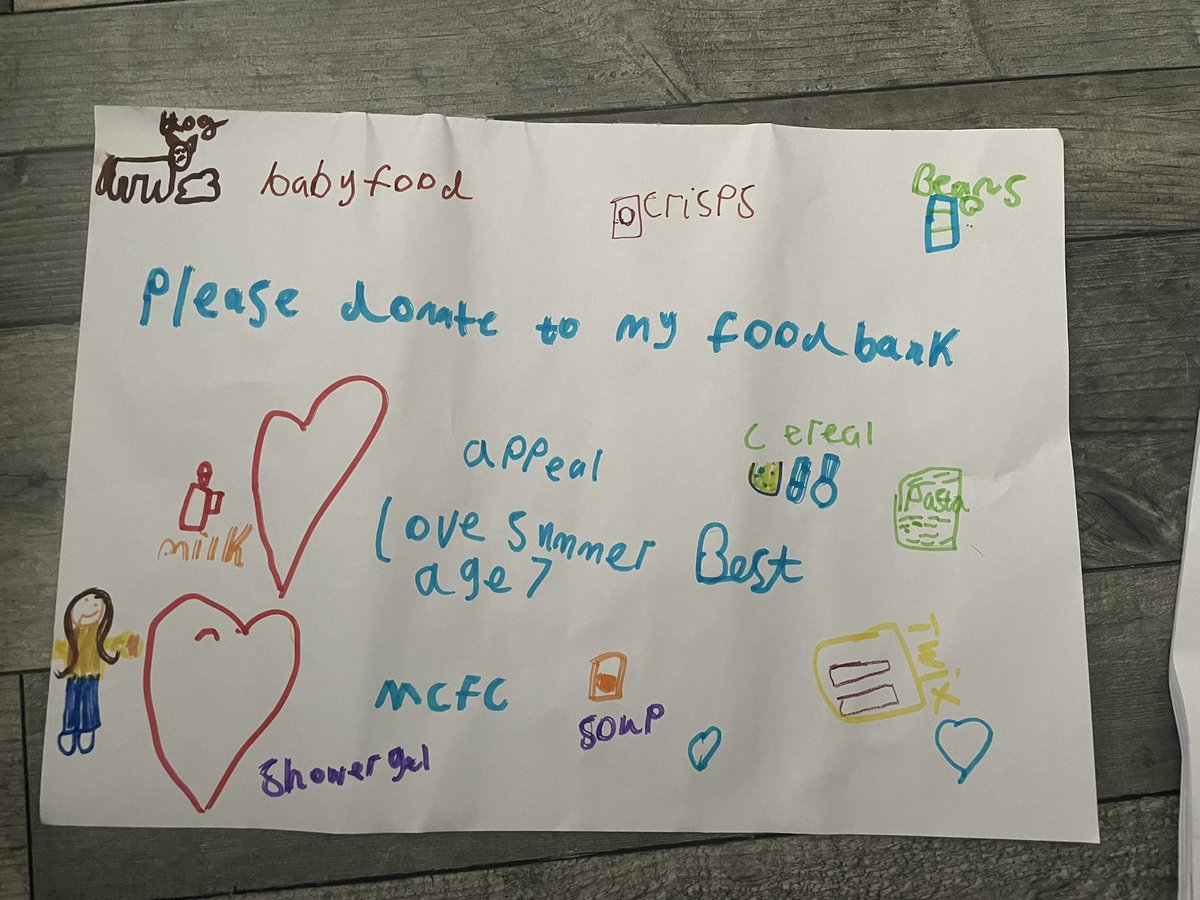 Dog
babyfood
crisps
Beans
Please donate to my foodbank
appeal
Cereal
Pasta
milk
love summer Best
age 7
Twix
MCFC
soup
Showergel